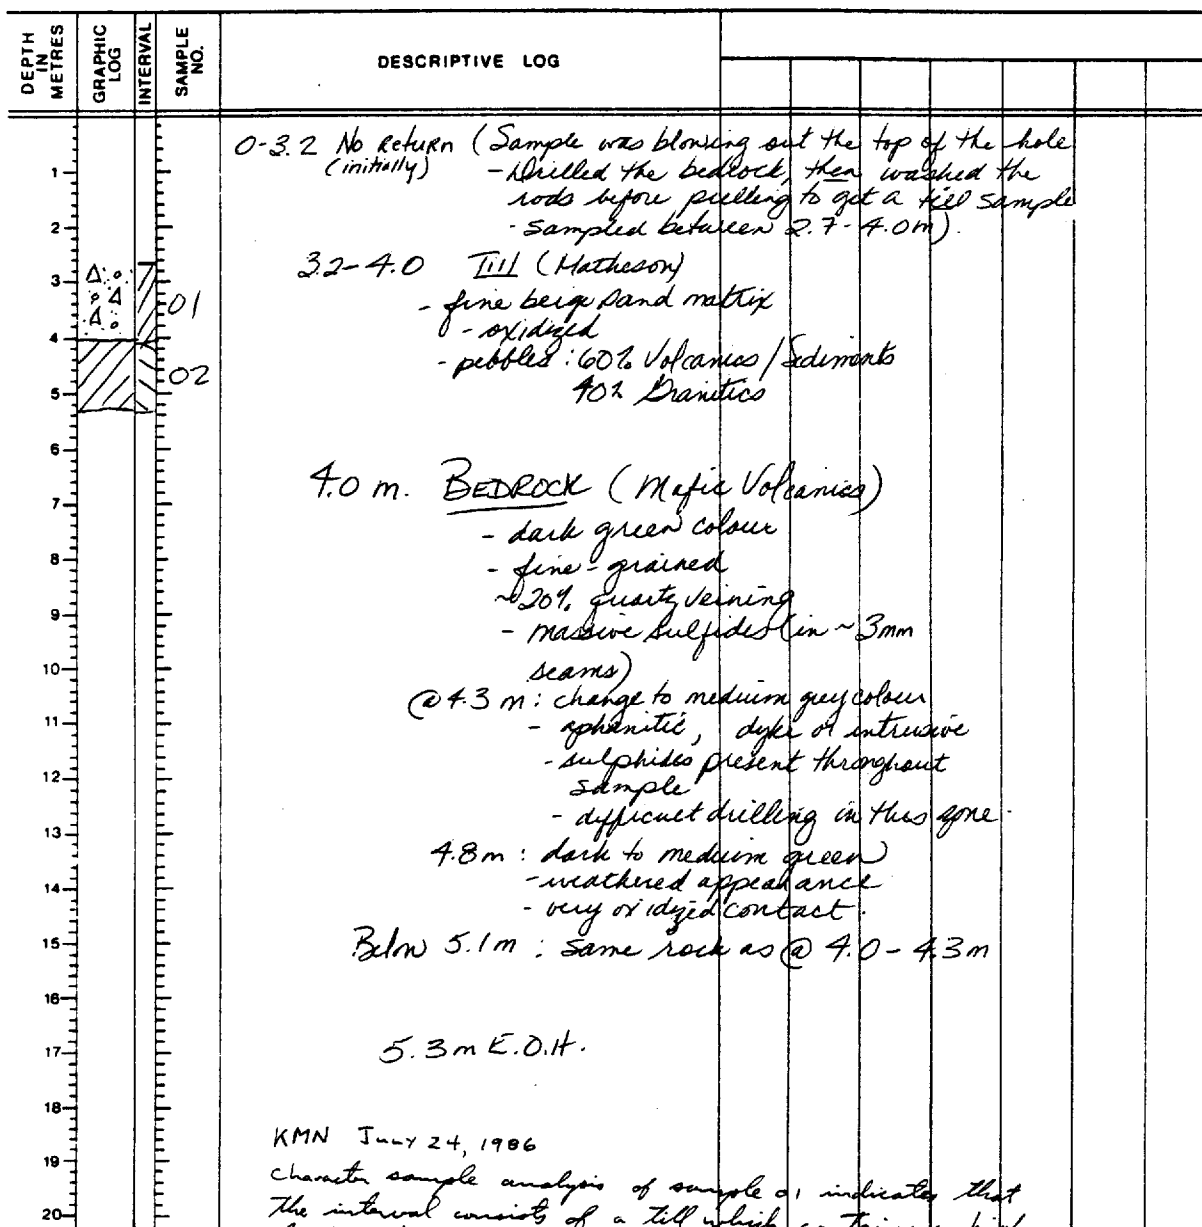 DEPTH IN METRES
GRAPHIC LOG
INTERVAL
SAMPLE NO.
DESCRIPTIVE LOG
0-3.2 No Return (Sample was blowing out the top of the hole
(initially) - Drilled the bedrock, then washed the
rods before pulling to get a till sample
- Sampled between 2.7-4.0m).
3.2-4.0 Till (Matheson)
- fine beige sand matrix
- oxidized
- pebbles: 60% Volcanics/Sediments
40% Granitics
4.0 m. BEDROCK (Mafic Volcanics)
- dark green colour
- fine-grained
~20% quartz veining
- massive sulfides (in ~3mm
seams)
@ 4.3 m: change to medium grey colour
- aphanitic, dyke or intrusive
- sulphides present throughout
sample
- difficult drilling in this zone.
4.8m: dark to medium green
- weathered appearance
- very oxidized contact.
Below 5.1m: same rock as @ 4.0-4.3m
5.3m E.O.H.
KMN 24, 1986
character sample analysis of sample 01 indicates that
the interval consists of a till which
1
2
3
4
5
6
7
8
9
10
11
12
13
14
15
16
17
18
19
20
01
02